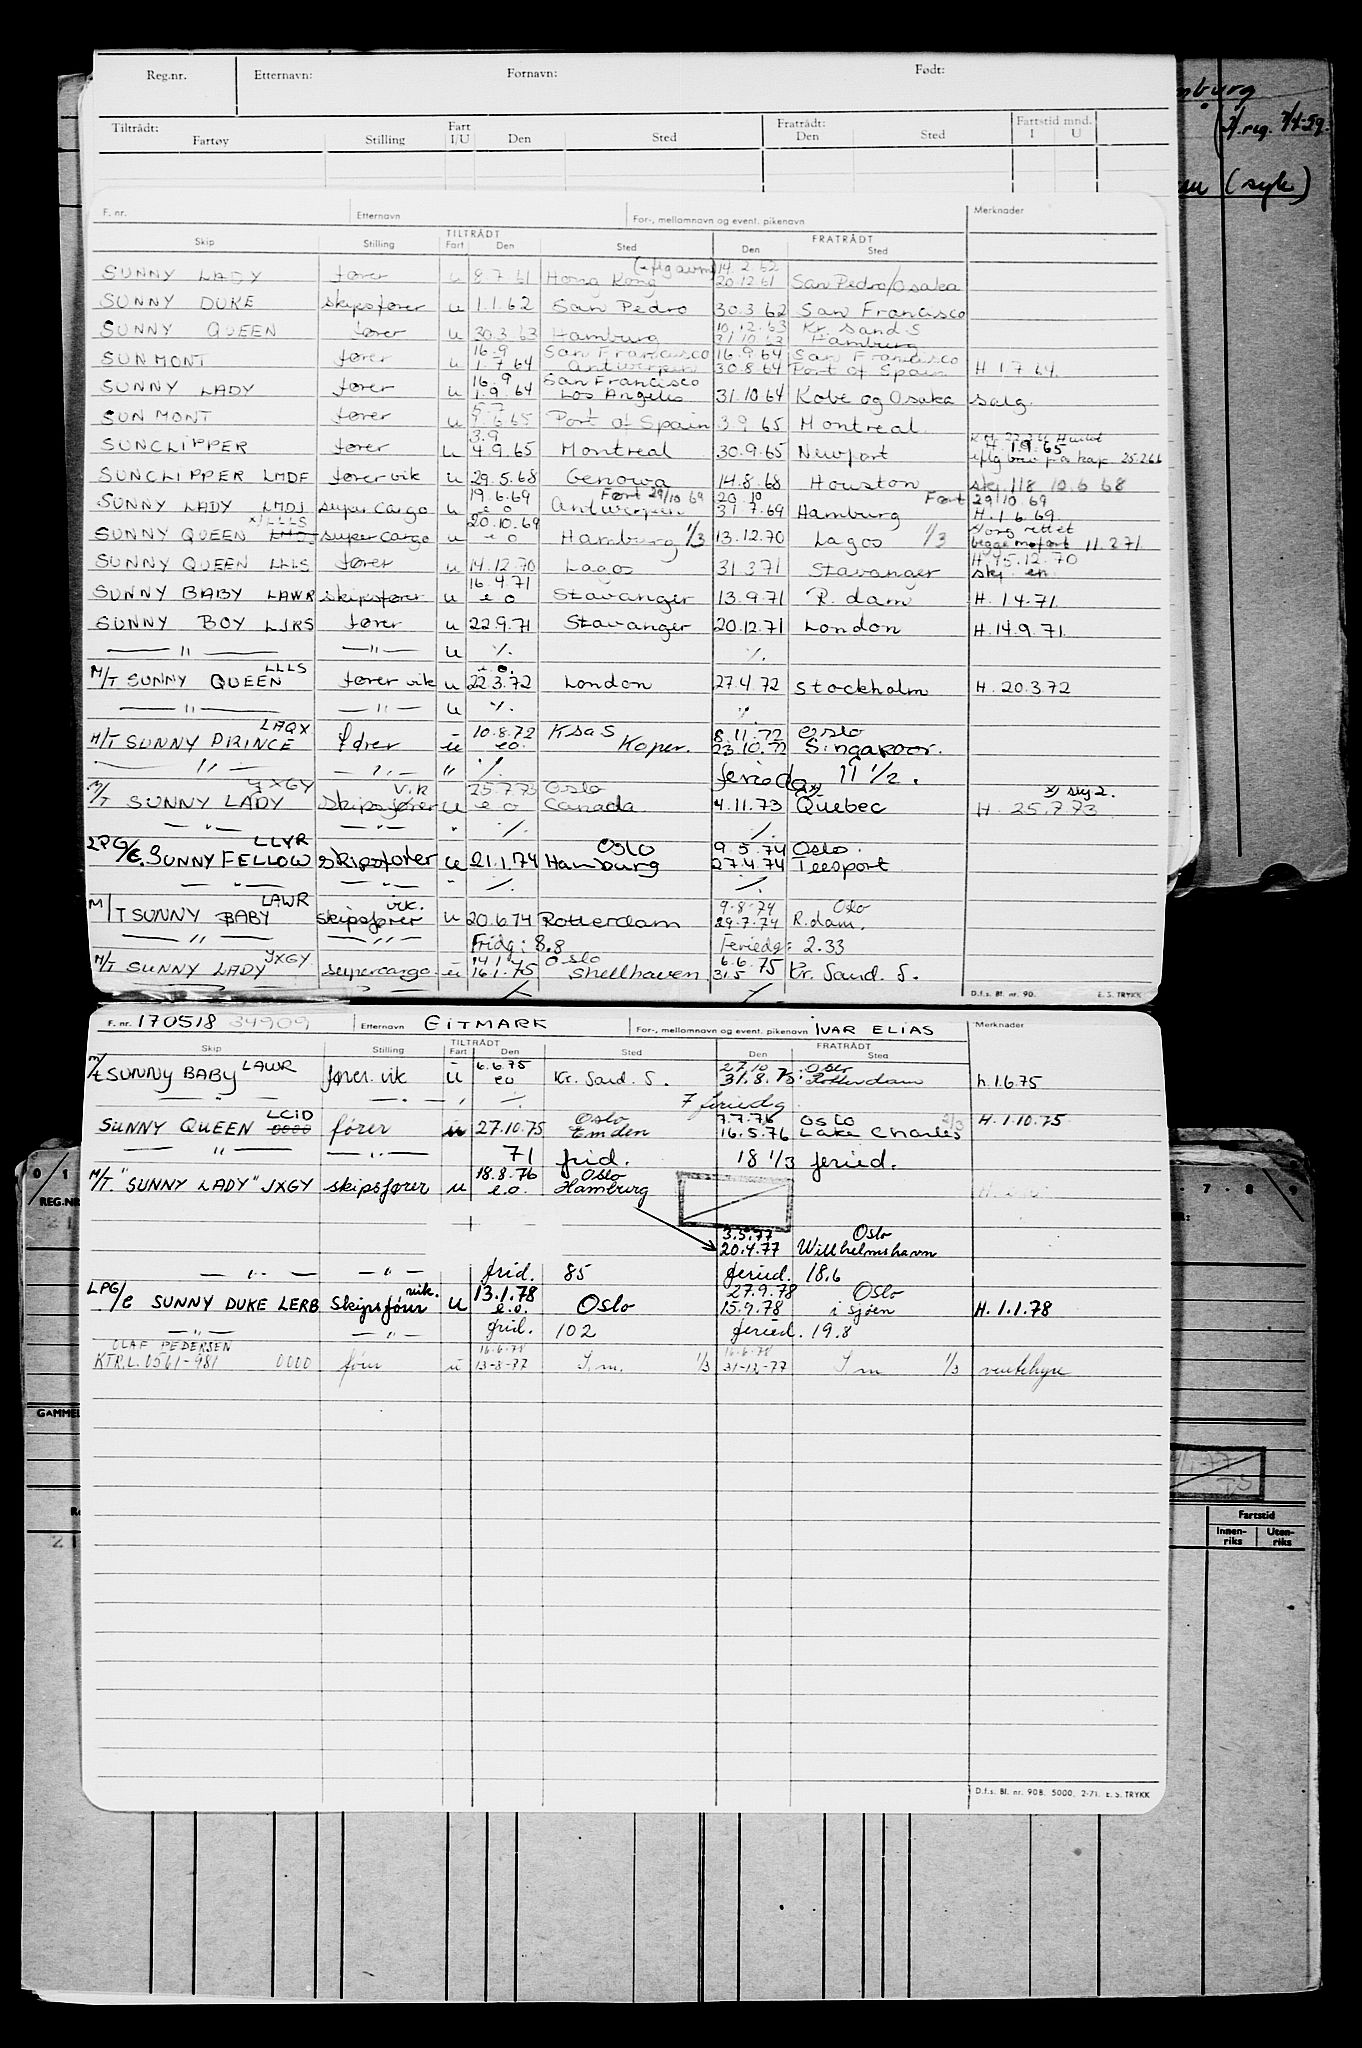 Reg.nr. Etternavn: Fornavn: Født:
Tiltrådt: Fart Fratrådt: Fartstid mnd.
Fartøy Stilling I/U Den Sted Den Sted I U
F. nr. Etternavn For-, mellomnavn og event. pikenavn Merknader
TILTRÅDT FRATRÅDT
Skip Stilling Fart Den Sted Den Sted
14.2.62
SUNNY LADY fører u 8.7.61 Hong Kong 20.12.61 San Pedro/Osaka
SUNNY DUKE skipsfører u 1.1.62 San Pedro 30.3.62 San Francisco
10.12.63 Kr. Sand S
SUNNY QUEEN fører u 30.3.63 Hamburg 31.10.63 Hamburg
16.9 San Francisco 16.9.64 San Francisco
SUNMONT fører u 1.7.64 Antwerpen 30.8.64 Port of Spain H 1.7.64.
16.9 San Francisco
SUNNY LADY fører u 1.9.64 Los Angeles 31.10.64 Kobe og Osaka salg.
SUNMONT fører u Port of Spain 3.9.65 Montreal
3.9
SUNCLIPPER fører u 4.9.65 Montreal 30.9.65 Newport H. 1.9.65
SUNCLIPPER LMDF fører vik u 29.5.68 Genowa 14.8.68 Houston skj 118 10.6.68
19.6.69 Ført 29/10 69 20.10 Ført 29/10 69
SUNNY LADY LMDJ supercargo u e o Antwerpen 31.7.69 Hamburg H. 1.6.69.
x) LLLS 20.10.69
SUNNY QUEEN supercargo u e o Hamburg 1/3 13.12.70 Lagos 1/3 11.2.71
SUNNY QUEEN LLLS fører u 14.12.70 Lagos 31.3.71 Stavanger H. 15.12.70
16.4.71
SUNNY BABY LAWR skipsfører u e o Stavanger 13.9.71 R.dam H. 1.4.71.
SUNNY BOY LJRS fører u 22.9.71 Stavanger 20.12.71 London H. 14.9.71.
— " — — " — u ./. ./.
LLLS
M/T SUNNY QUEEN fører vik u 22.3.72 London 27.4.72 Stockholm H. 20.3.72
— " — — " — u ./. ./.
LAQX 10.8.72 KsaS 8.11.72 Oslo
M/T SUNNY PRINCE fører u eo. Koper. 23.10.72 Singapoor.
— " — — " — " ./. feriedag 11 1/2.
JXGY vik 25.7.73 Oslo x) skj 2.
M/T SUNNY LADY skipsfører u e o Canada 4.11.73 Quebec H. 25.7.73
— " — — " — " ./. ./.
LLYR Oslo 9.5.74 Oslo.
LPG/C. SUNNY FELLOW skipsfører u 21.1.74 Hamburg 27.4.74 Teesport
— " — — " — " ./. ./.
LAWR vik. 9.8.74 Oslo
M/T SUNNY BABY skipsfører u 20.6.74 Rotterdam 29.7.74 R.dam.
— " — — " — Fridg: 8.8 Feriedg: 2.33
JXGY Oslo 6.6.75
M/T SUNNY LADY supercargo u 16.1.75 Shellhaven 31.5 Kr. Sand. S.
D.f.s. Bl. nr. 90. E. S. TRYKK
F. nr. 170518 34909 Etternavn EITMARK For-, mellomnavn og event. pikenavn IVAR ELIAS Merknader
TILTRÅDT FRATRÅDT
Skip Stilling Fart Den Sted Den Sted
LAWR 6.6.75 27.10 Oslo
m/t SUNNY BABY fører vik u eo Kr. Sand. S. 31.8.75 Rotterdam h. 1.6.75
— " — — " — " ./. 7 feriedg
LCID Oslo 7.7.76 OSLO 2/3
SUNNY QUEEN 0000 fører u 27.10.75 Emden 16.5.76 Lake Charles H. 1.10.75
— " — — " — 71 frid. 18 1/3 feried.
18.8.76 Oslo
M/T. "SUNNY LADY" JXGY skipsfører u e.o. Hamburg
3.5.77 Oslo
20.4.77 Willhelmshavn
— " — — " — frid. 85 feried. 18.6
vik. 13.1.78 27.9.78 Oslo
LPG/C SUNNY DUKE LERB Skipsfører u e.o. Oslo 15.9.78 i sjøen H. 1.1.78
— " — — " — frid. 102 feried. 19.8
OLAF PEDERSEN 16.6.78 16.6.78
KTR.L. 0561-981 0000 fører u 13-8-77 S.m. 1/3 31-12-77 S m 1/3 ventehyre
D.f.s. Bl. nr. 90B. 5000. 2-71. E. S. TRYKK
reg. 7/4-59.
(syk)
0 1
REG.NR
GAMMEL
7 8 9
Fartstid
Innen-riks Uten-riks